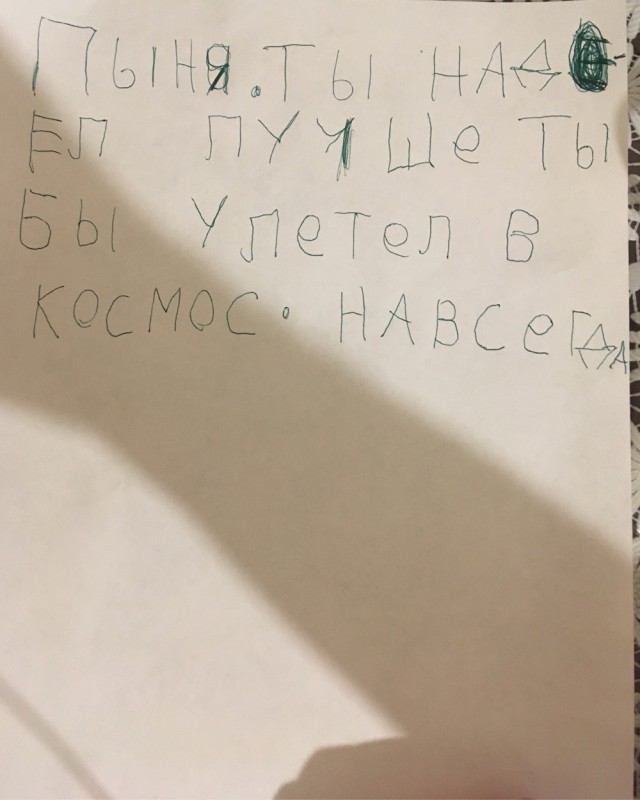 ПЫНЯ. ТЫ НАДО
ЕЛ ЛУЧШе ТЫ
БЫ УЛеТеЛ В
КОСМОС. НАВСеГДА